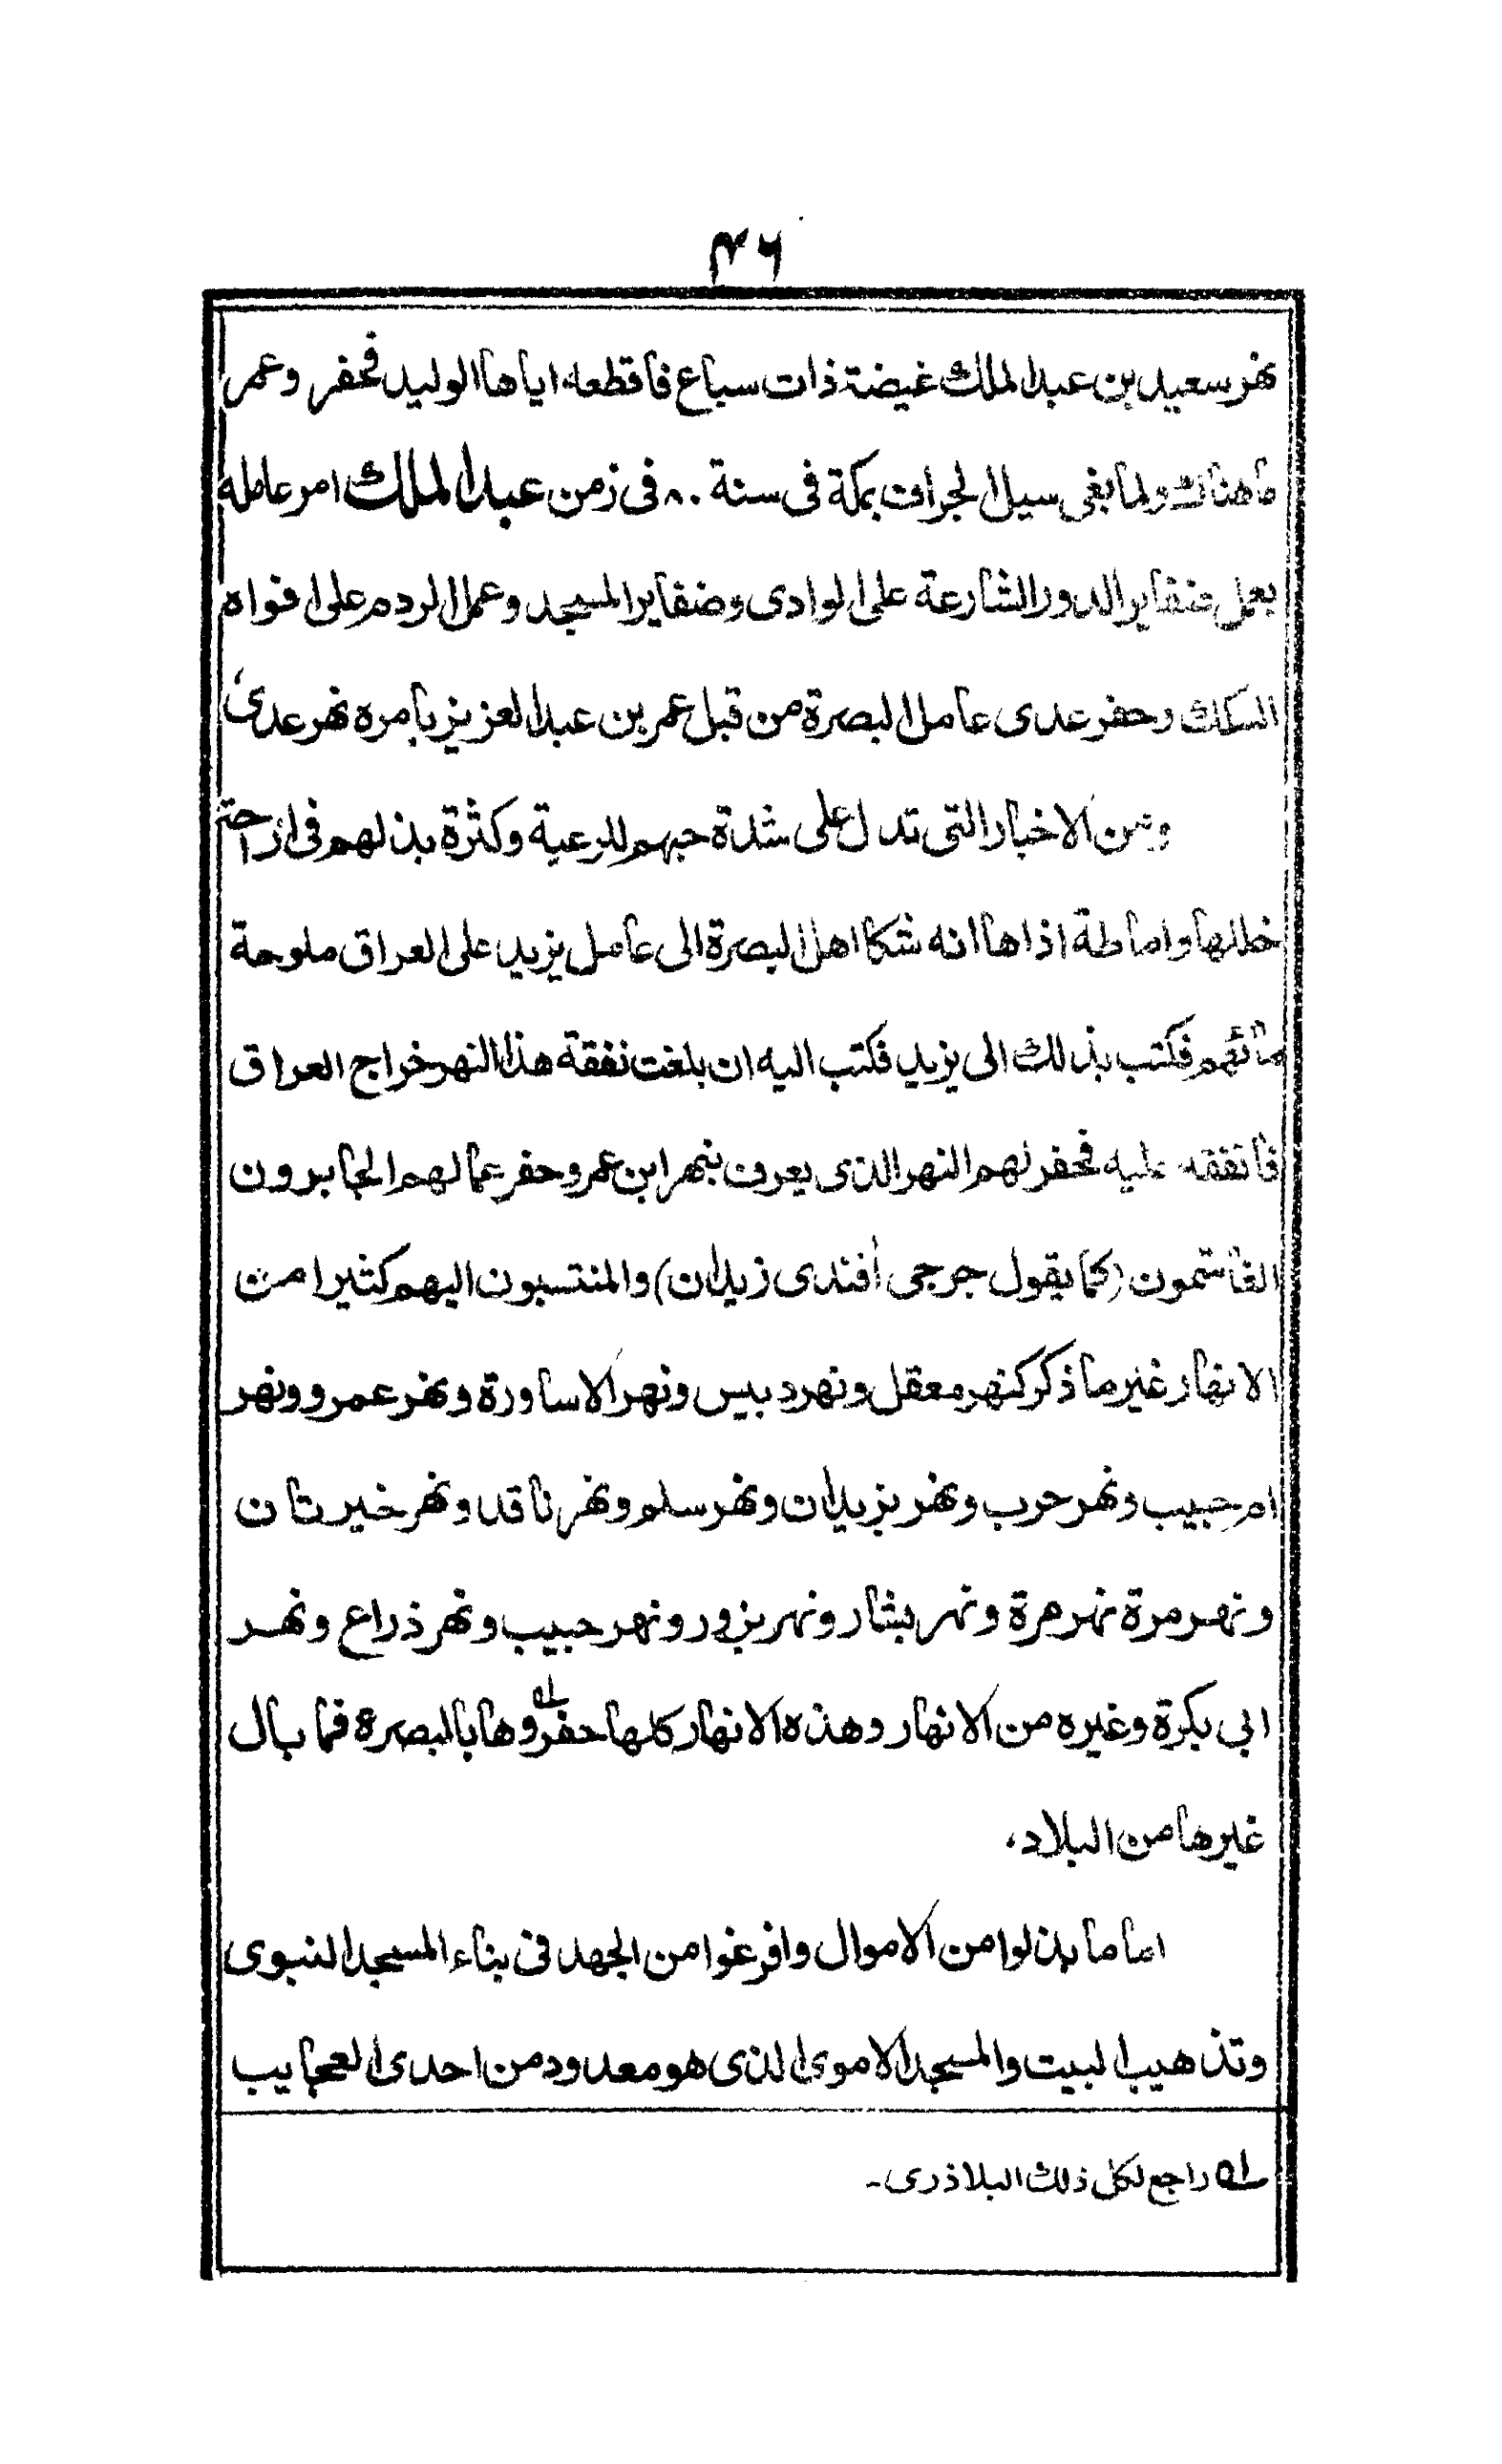 ۴۶
نهر سعيد بن عبد الملك غيضة ذات سباع فاقطعه اياها الوليد فحفر وعمر
ما هناك ولما بغى سيل الجراف بمكة فى سنة ۸۰ فى زمن عبد الملك امر عامله
بعمل ضفاير الدور الشارعة على الوادى وضفاير المسجد وعمل الردم على افواه
السكك وحفر عدى عامل البصرة من قبل عمر بن عبد العزيز بامره نهر عدى
ومن الاخبار التى تدل على شدة حبهم للرعية وكثرة بذلهم فى ازاحة
خللها واماطة اذاها انه شكا اهل البصرة الى عامل يزيد على العراق ملوحة
مائهم فكتب بذلك الى يزيد فكتب اليه ان بلغت نفقة هذا النهر خراج العراق
فانفقه عليه فحفر لهم النهر الذى يعرف بنهر ابن عمر وحفر عمالهم الجابرون
الغاشمون (كما يقول جرجى أفندى زيدان) والمنتسبون اليهم كثيرا من
الانهار غير ما ذكر كنهر معقل ونهر دبيس ونهر الاساورة ونهر عمرو ونهر
ام حبيب ونهر حرب ونهر يزيدان ونهر سلم ونهر ناقد ونهر خيرتان
ونهر مرة نهر مرة ونهر بشار ونهر بزور ونهر حبيب ونهر ذراع ونهر
ابى بكرة وغيره من الانهار وهذه الانهار كلها حفروها ؎۱ بالبصرة فما بال
غيرها من البلاد،
اما ما بذلوا من الاموال وافرغوا من الجهد فى بناء المسجد النبوى
وتذهيب البيت والمسجد الاموى الذى هو معدود من احدى العجايب
؎۱ راجع لكل ذلك البلاذرى۔